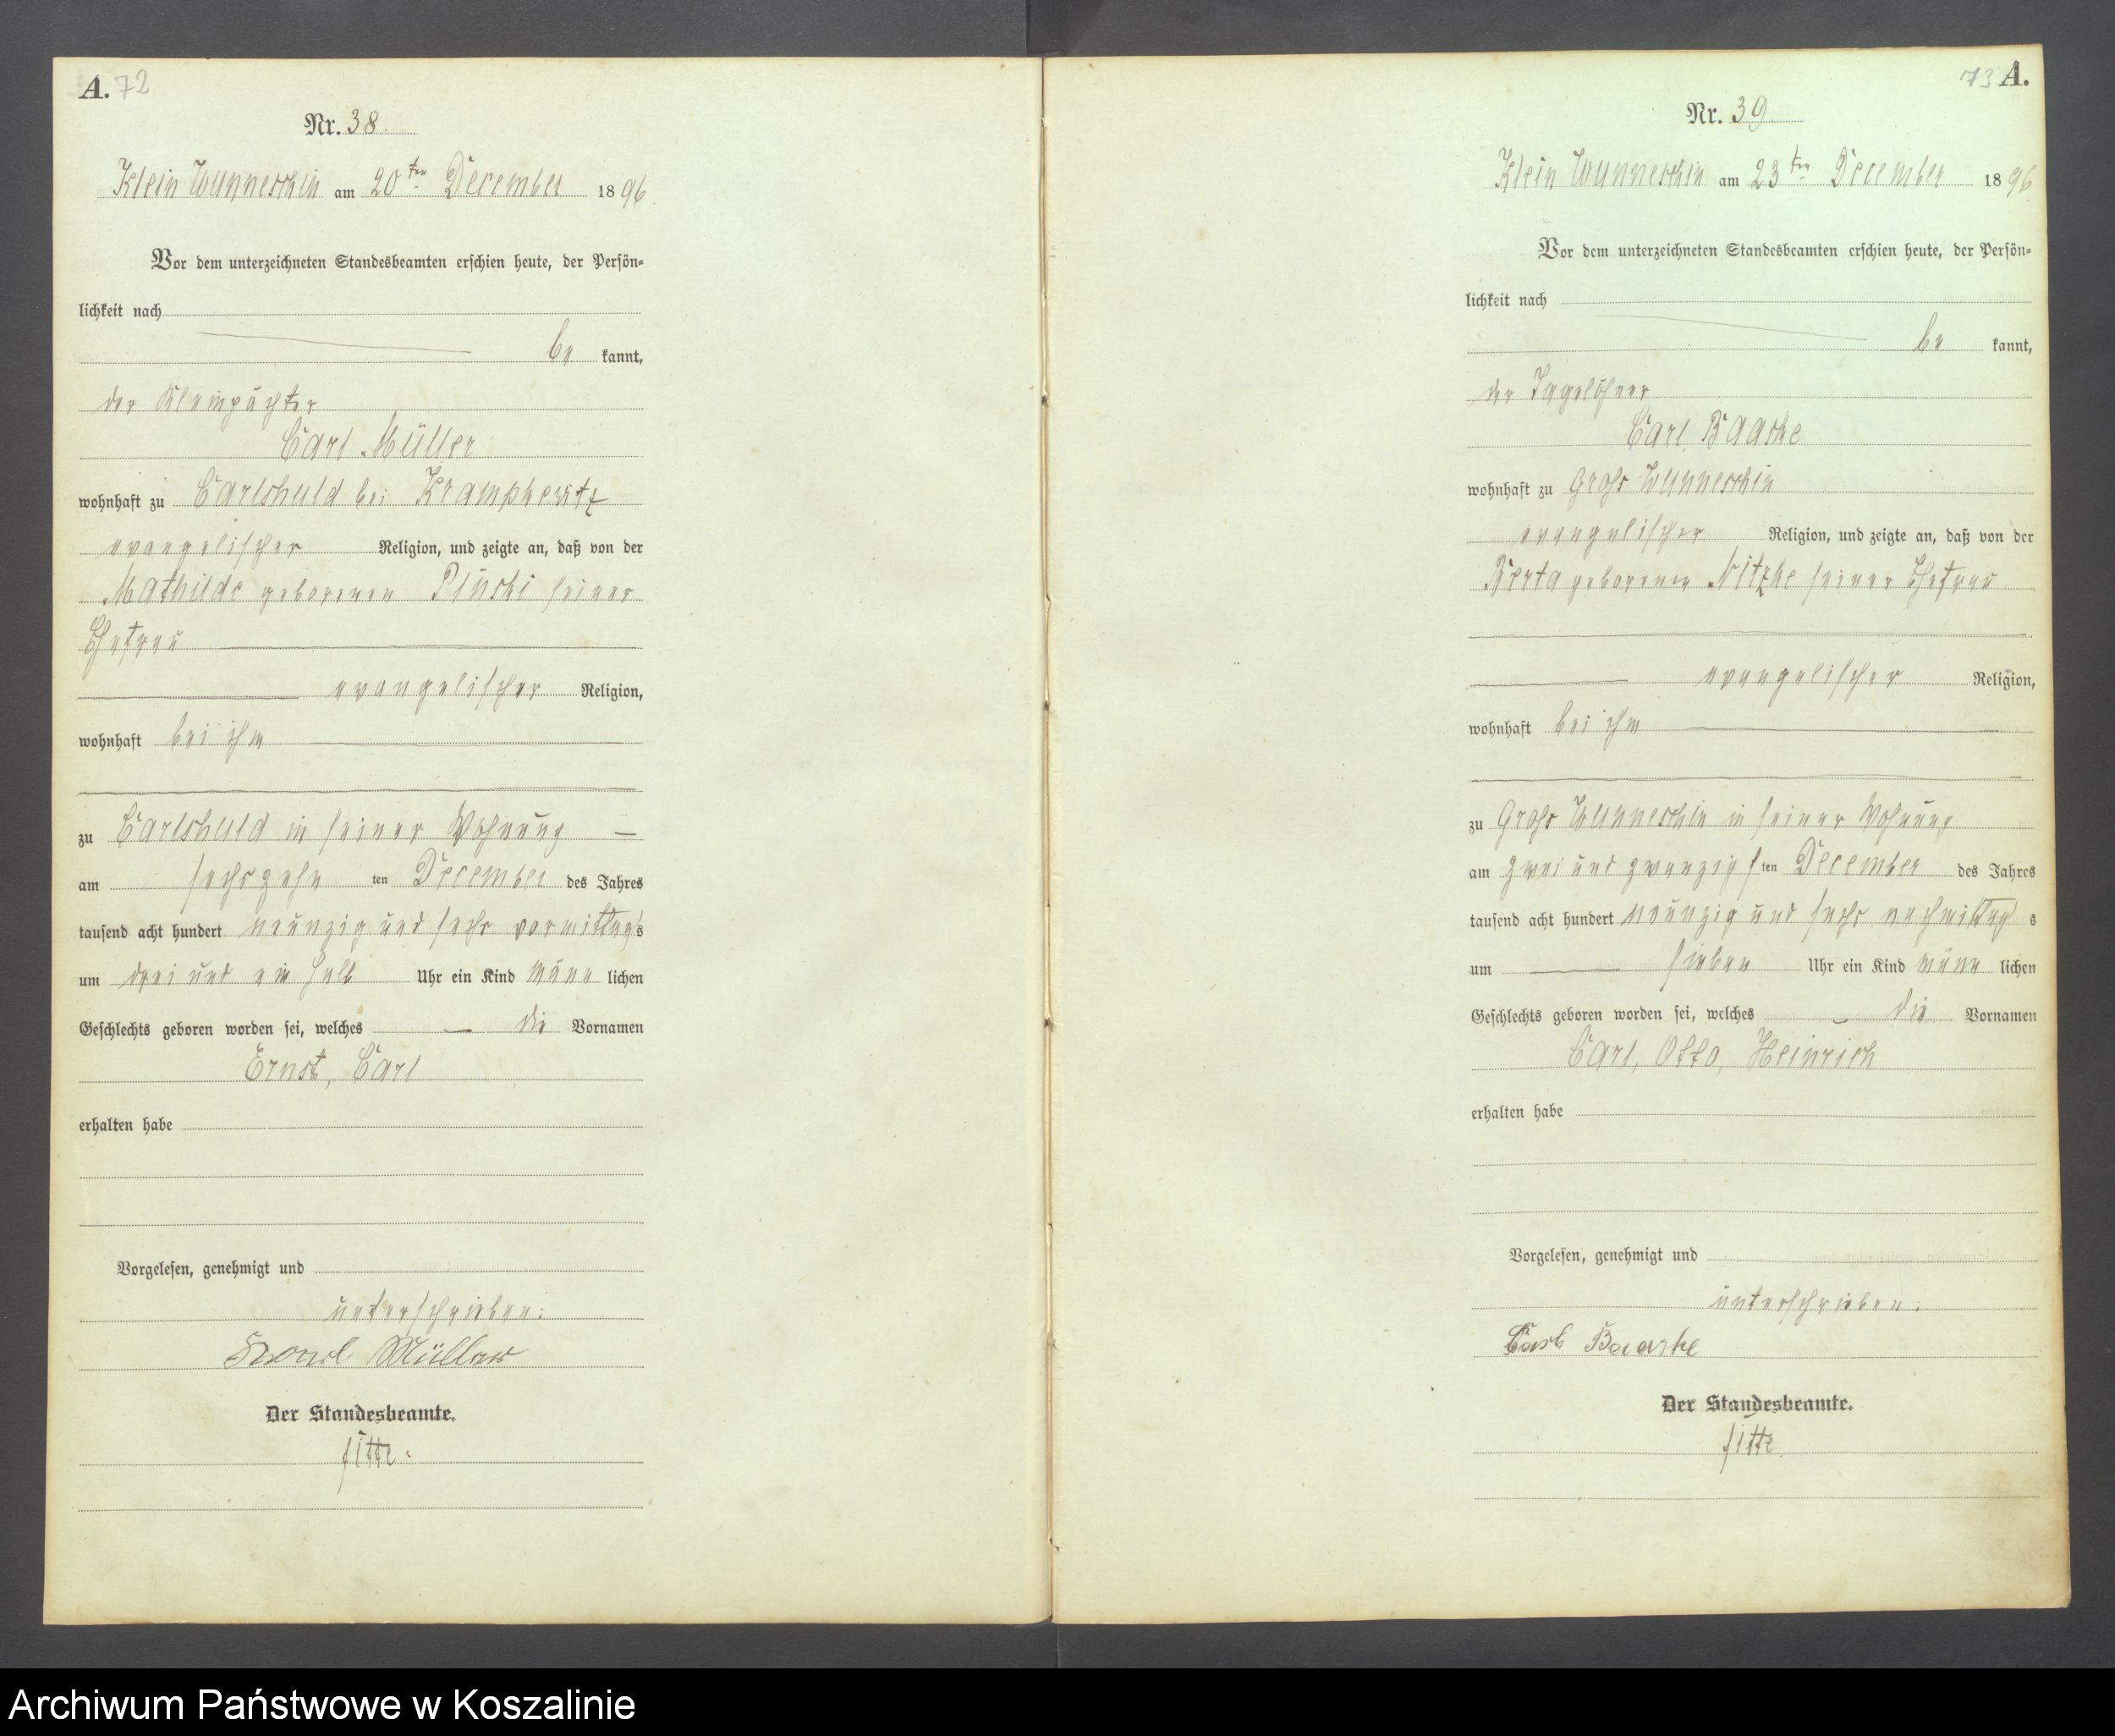 A. 72
Nr. 38.
Klein Wunneschin am 20ten December 1896.
Vor dem unterzeichneten Standesbeamten erschien heute, der Persön-
lichkeit nach
be kannt,
der Kleinpächter
Carl Müller
wohnhaft zu Carlshuld bei Krampkewitz
evangelischer Religion, und zeigte an, daß von der
Mathilde geborenen Pluski seiner
Ehefrau
evangelischer Religion,
wohnhaft bei ihm
zu Carlshuld in seiner Wohnung
am sechszehn ten December des Jahres
tausend acht hundert neunzig und sechs vormittags
um drei und ein halb Uhr ein Kind männ lichen
Geschlechts geboren worden sei, welches die Vornamen
Ernst, Carl
erhalten habe
Vorgelesen, genehmigt und
unterschrieben:
Müller
Der Standesbeamte.
fitte.
73 A.
Nr. 39.
Klein Wunneschin am 23ten December 1896.
Vor dem unterzeichneten Standesbeamten erschien heute, der Persön-
lichkeit nach
be kannt,
der Tagelöhner
Carl Baaske
wohnhaft zu Gross Wunneschin
evangelischer Religion, und zeigte an, daß von der
Berta geborenen Nitzke seiner Ehefrau
evangelischer Religion,
wohnhaft bei ihm
zu Gross Wunneschin in seiner Wohnung
am zwei und zwanzigs ten December des Jahres
tausend acht hundert neunzig und sechs nachmittag s
um sieben Uhr ein Kind männ lichen
Geschlechts geboren worden sei, welches die Vornamen
Carl, Otto, Heinrich
erhalten habe
Vorgelesen, genehmigt und
unterschrieben:
Carl Baaske
Der Standesbeamte.
fitte.
Archiwum Państwowe w Koszalinie